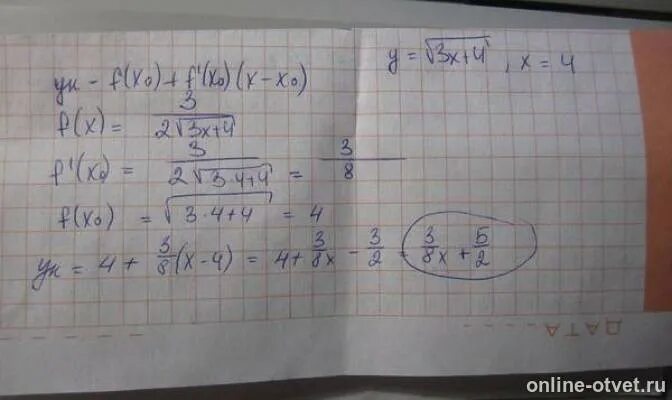 y = √3x+4 , x = 4
yк - f(x₀) + f'(x₀) (x - x₀)
f(x) = 3/2√3x+4
f'(x₀) = 3/2√3·4+4 = 3/8
f(x₀) = √3·4+4 = 4
yк = 4 + 3/8(x-4) = 4 + 3/8x - 3/2 = 3/8x + 5/2
ДАТА
online-otvet.ru